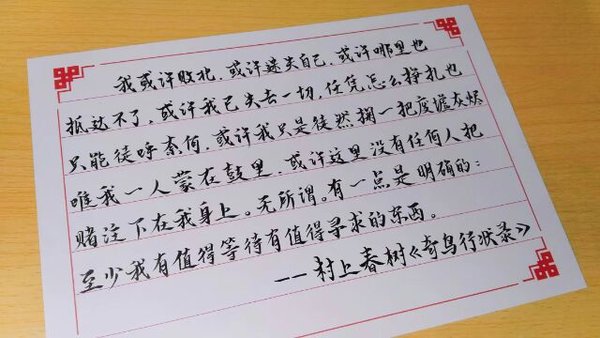 我或许败北,或许迷失自己,或许哪里也
抵达不了,或许我已失去一切,任凭怎么挣扎也
只能徒呼奈何,或许我只是徒然掬一把废墟灰烬
唯我一人蒙在鼓里,或许这里没有任何人把
赌注下在我身上。无所谓。有一点是明确的:
至少我有值得等待有值得寻求的东西。
——村上春树《奇鸟行状录》